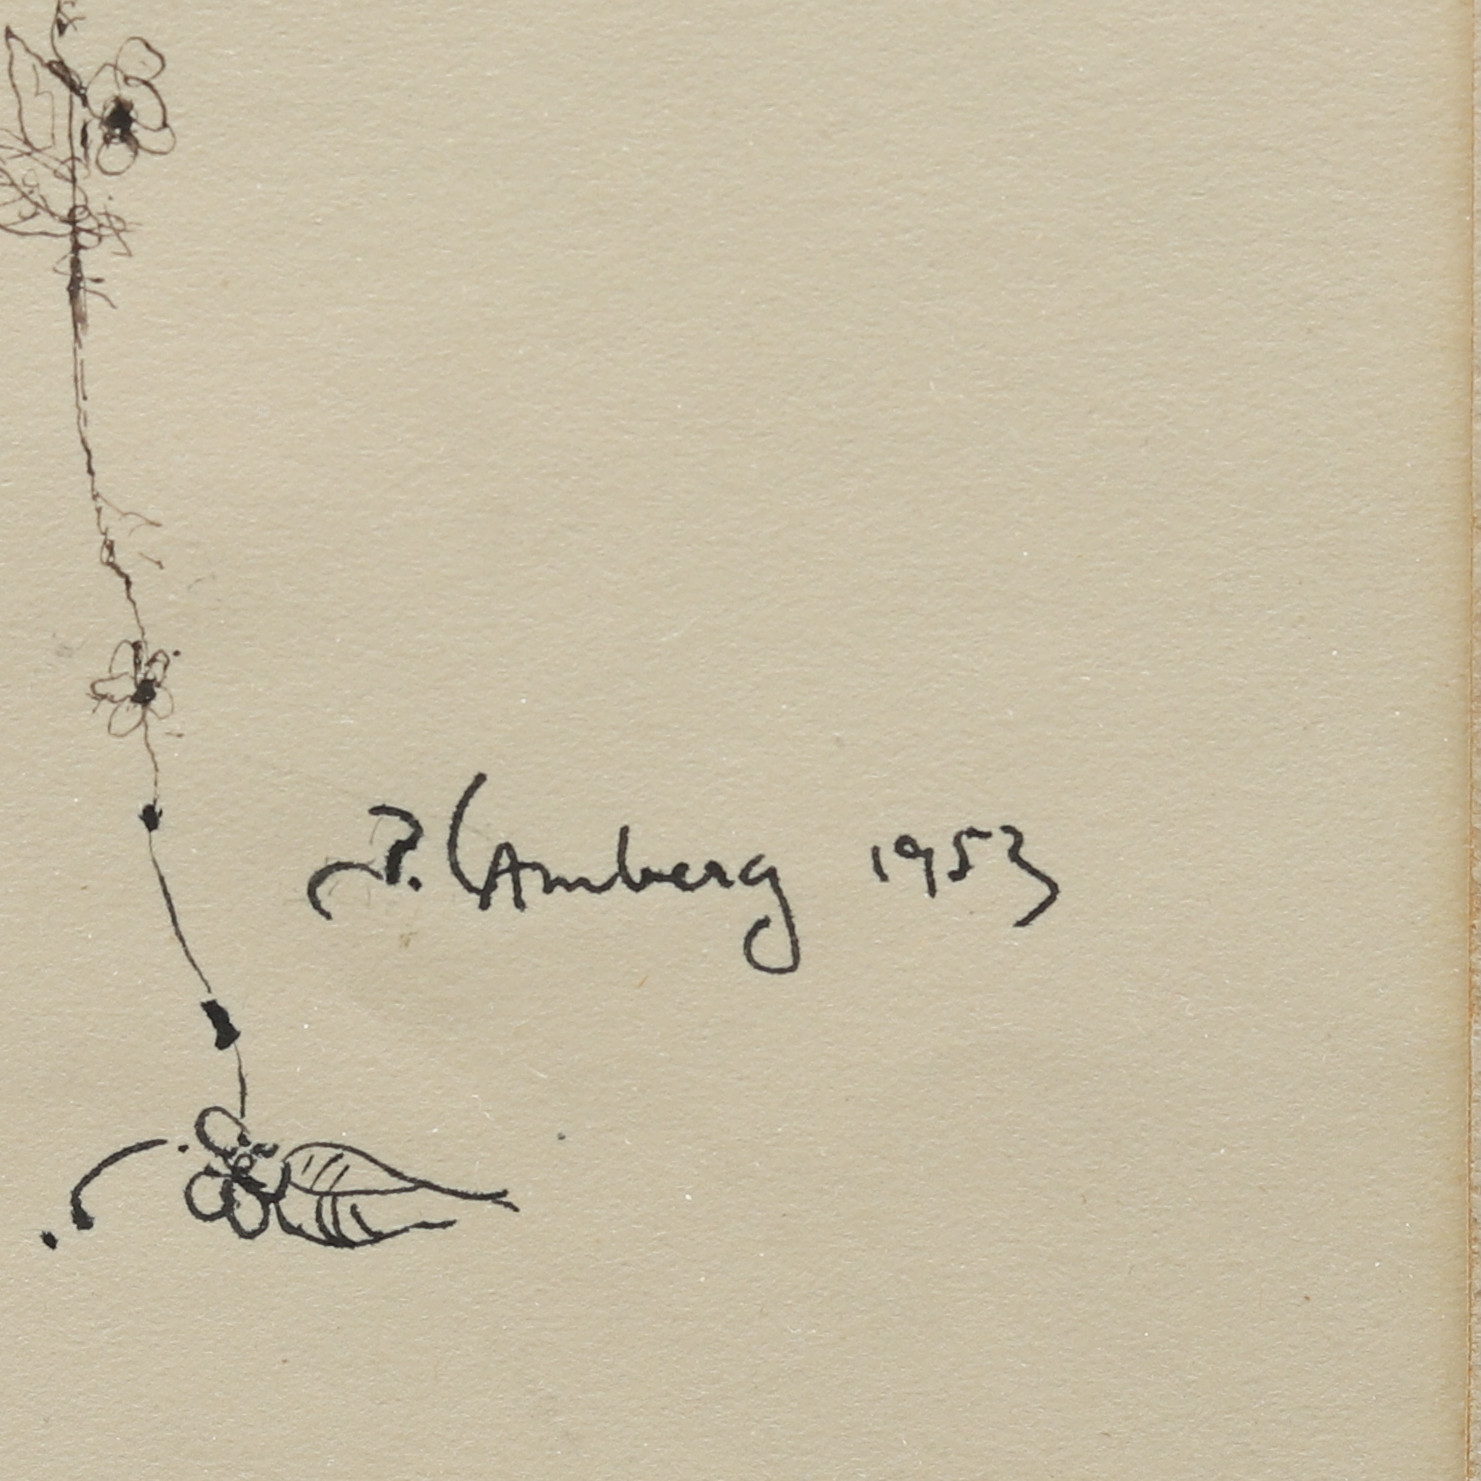 P. Lamberg 1953